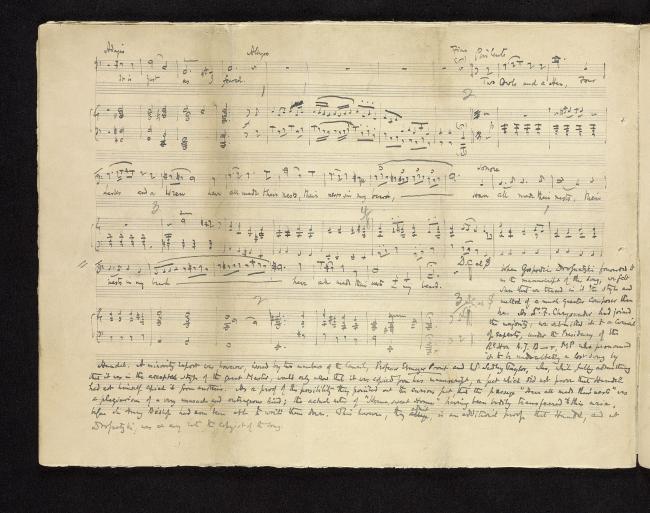 Adagio Allegro Fine
It is just as I feared
Two Owls and a Hen, Four
larks and a Wren have all made their nests, their nests in my beard,
sonore
have all made their nests, their
nests in my beard have all made their nests in my beard.
D.C. al
When Gospodin forwarded
us the manuscript of this song, we felt
when that we traced in it the style and
method of a much greater composer than
he. As Dr. F. Chrysander had joined
the majority, we submitted it to a Council
of experts, under the Presidency of the
Rt Hon. A.J. MP who pronounced
it to be undoubtedly a lost song by
Handel. A minority report was however, issued by two members of the Council, Professor Prout and Mr Sedley Taylor, who, while fully admitting
that it was in the accepted style of the great Master, would only allow that it was copied from his manuscript, a fact which did not prove that Handel
had not himself copied it from another. As a proof of the possibility they pointed out the curious fact that the passage "have all made their nests" was
a plagiarism of a very unusual and outrageous kind; the actual notes of "Home, sweet Home" having been bodily transferred to this aria,
before Sir Henry Bishop had even been able to write them down. This however, they in an additional proof that Handel, and not
was at any rate the copyist of the song.